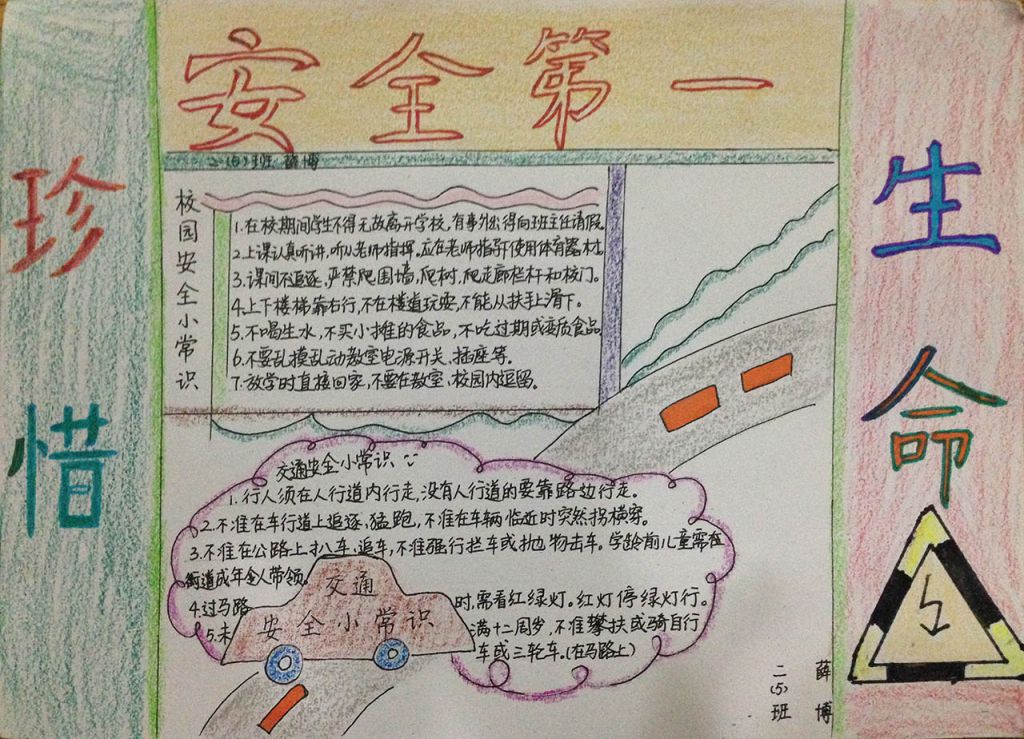 安全第一
二(5)班 薛博
珍惜
生命
校园安全小常识
1.在校期间学生不得无故离开学校,有事外出得向班主任请假.
2.上课认真听讲,听从老师指挥。应在老师指导下使用体育器材.
3.课间不追逐,严禁爬围墙,爬树,爬走廊栏杆和校门。
4.上下楼梯靠右行,不在楼道玩耍,不能从扶手上滑下。
5.不喝生水,不买小摊的食品,不吃过期或变质食品
6.不要乱摸乱动教室电源开关、插座等。
7.放学时直接回家,不要在教室、校园内逗留。
交通安全小常识
1.行人须在人行道内行走,没有人行道的要靠路边行走。
2.不准在车行道上追逐、猛跑,不准在车辆临近时突然拐横穿。
3.不准在公路上扒车、追车,不准强行拦车或抛物击车。学龄前儿童需在
街道成年人带领。
4.过马路时,需看红绿灯。红灯停绿灯行。
5.未满十二周岁,不准攀扶或骑自行
车或三轮车.(在马路上)
交通
安全小常识
二(5)班
薛博